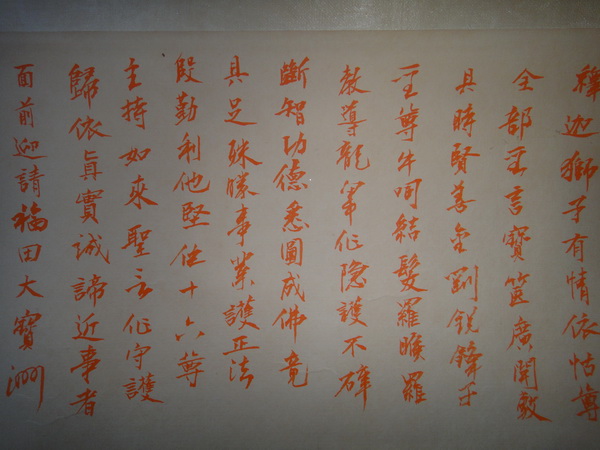 釋迦獅子有情依怙尊
全部至言寶篋廣開啟
具時賢善金剛銳鋒手
至尊牛呞結髮羅曠羅
教導龍軍作隱護不碎
斷智功德悉圖成佛竟
具足殊勝事業護正法
段勤利他堅住十六尊
主持如來聖言作守護
歸依真實誠諦近事者
面前迎請福田大寶洲